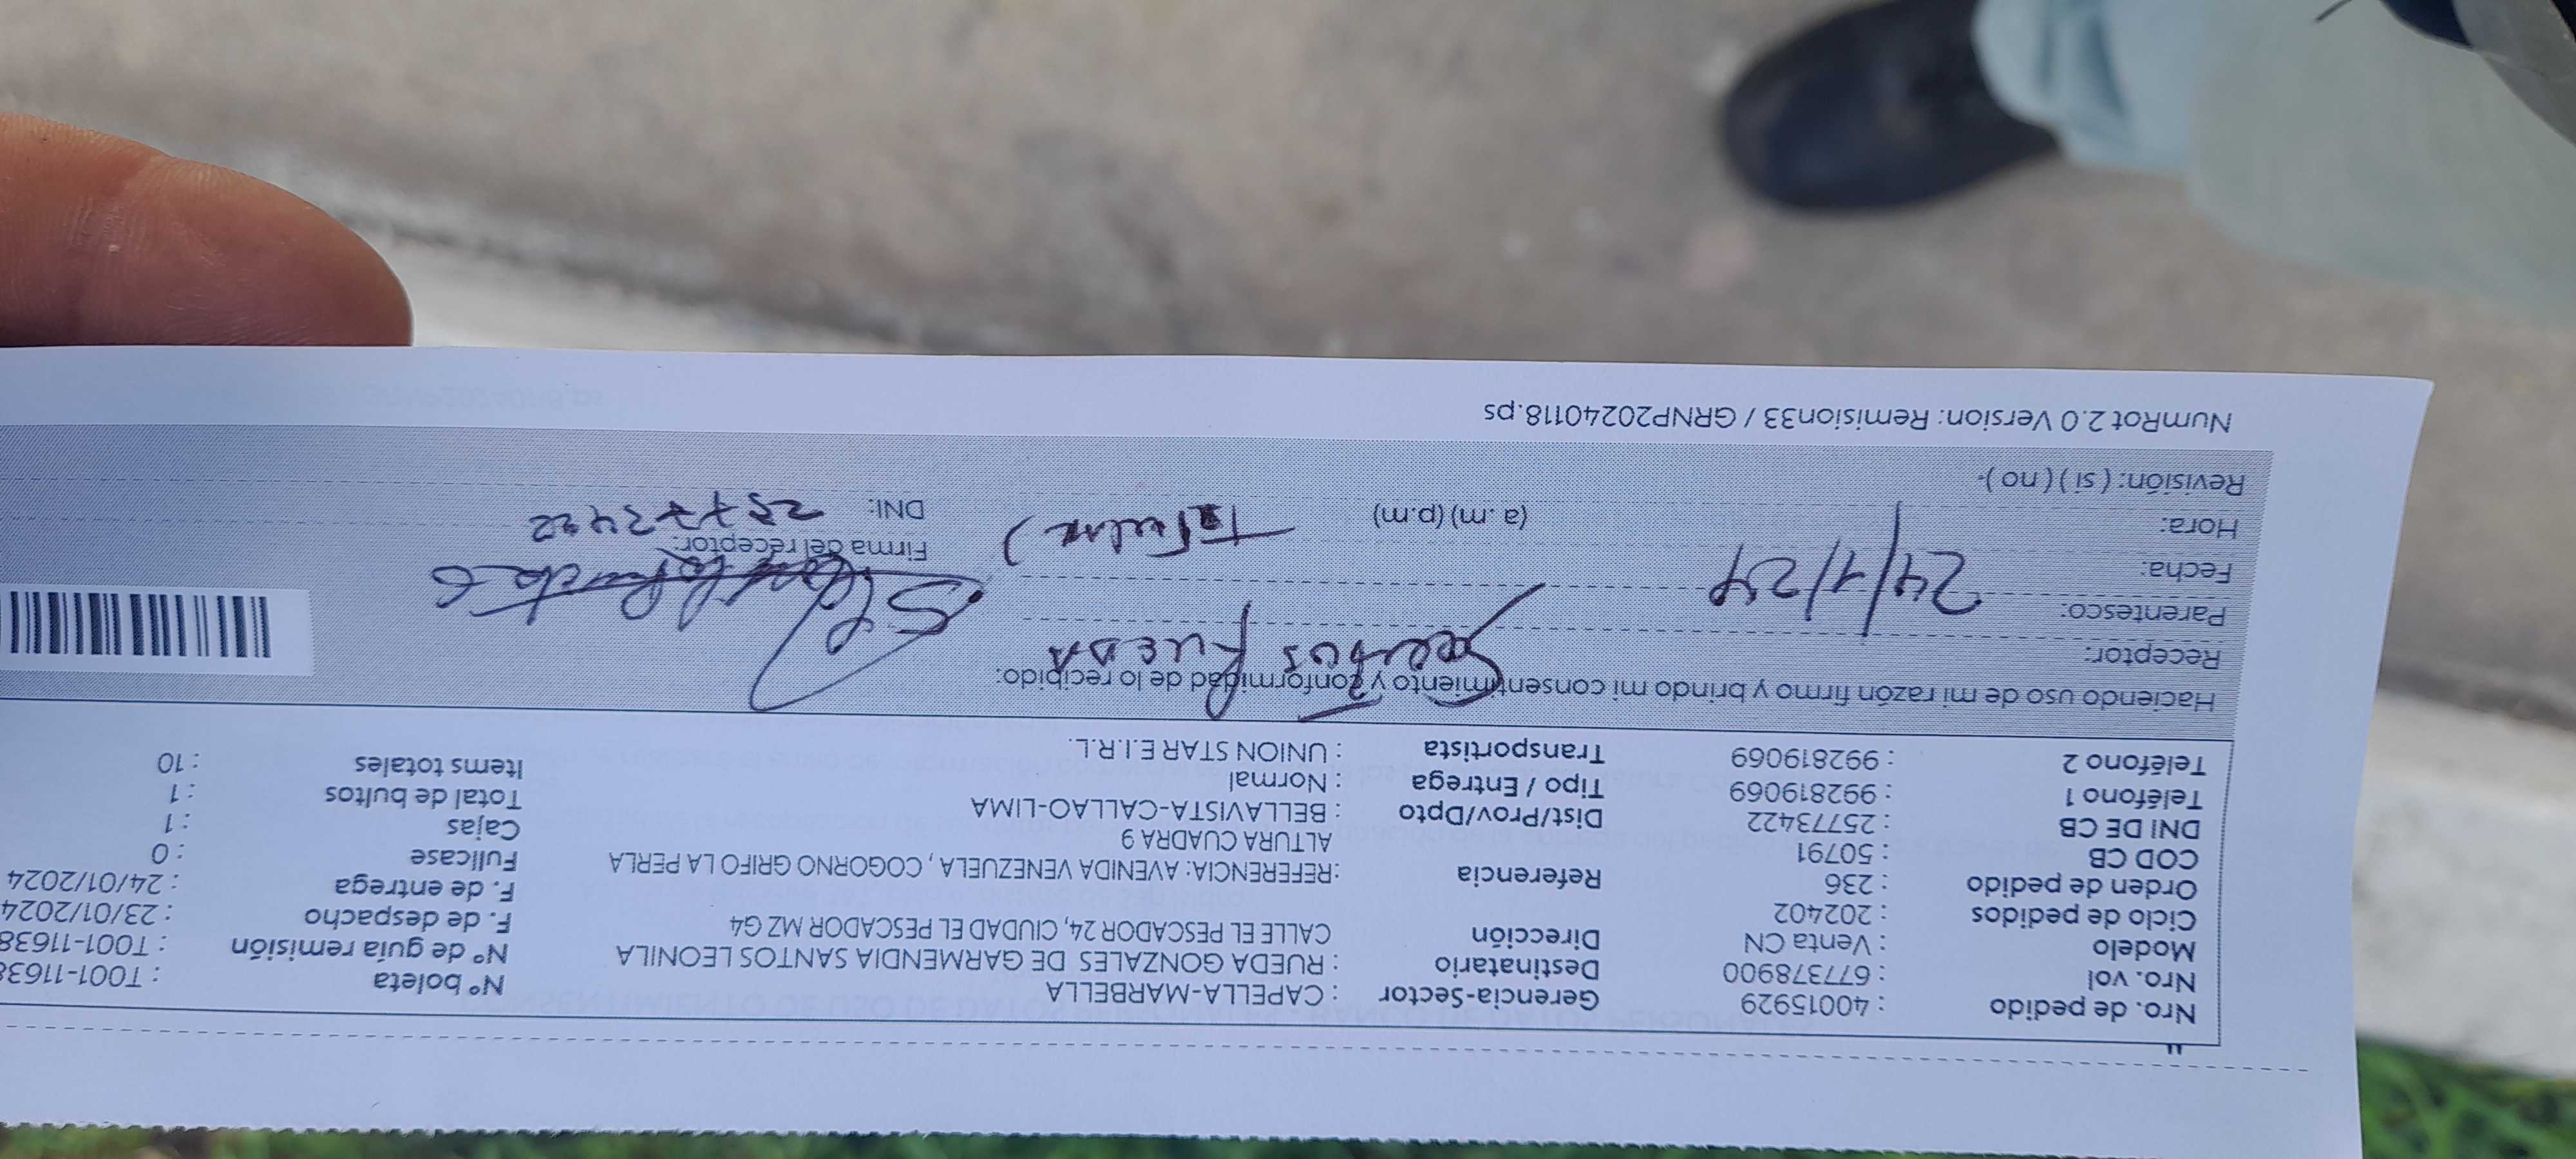 Nro. de pedido : 40015929 Gerencia-Sector : CAPELLA-MARBELLA Nº boleta : T001-11638
Nro. vol : 677378900 Destinatario : RUEDA GONZALES DE GARMENDIA SANTOS LEONILA Nº de guía remisión : T001-11638
Modelo : Venta CN Dirección CALLE EL PESCADOR 24, CIUDAD EL PESCADOR MZ G4 F. de despacho : 23/01/2024
Ciclo de pedidos : 202402 F. de entrega : 24/01/2024
Orden de pedido : 236 Referencia :REFERENCIA: AVENIDA VENEZUELA , COGORNO GRIFO LA PERLA Fullcase : 0
COD CB : 50791 ALTURA CUADRA 9 Cajas : 1
DNI DE CB : 25773422 Dist/Prov/Dpto : BELLAVISTA-CALLAO-LIMA Total de bultos : 1
Teléfono 1 : 992819069 Tipo / Entrega : Normal Items totales : 10
Teléfono 2 : 992819069 Transportista : UNION STAR E.I.R.L.
Haciendo uso de mi razón firmo y brindo mi consentimiento y conformidad de lo recibido:
Receptor: RUEDA
Parentesco:
Fecha: 24/1/24 Firma del receptor:
Hora: (a. m) (p.m) DNI: 25773422
Revisión: ( si ) ( no )
NumRot 2.0 Version: Remision33 / GRNP20240118.ps